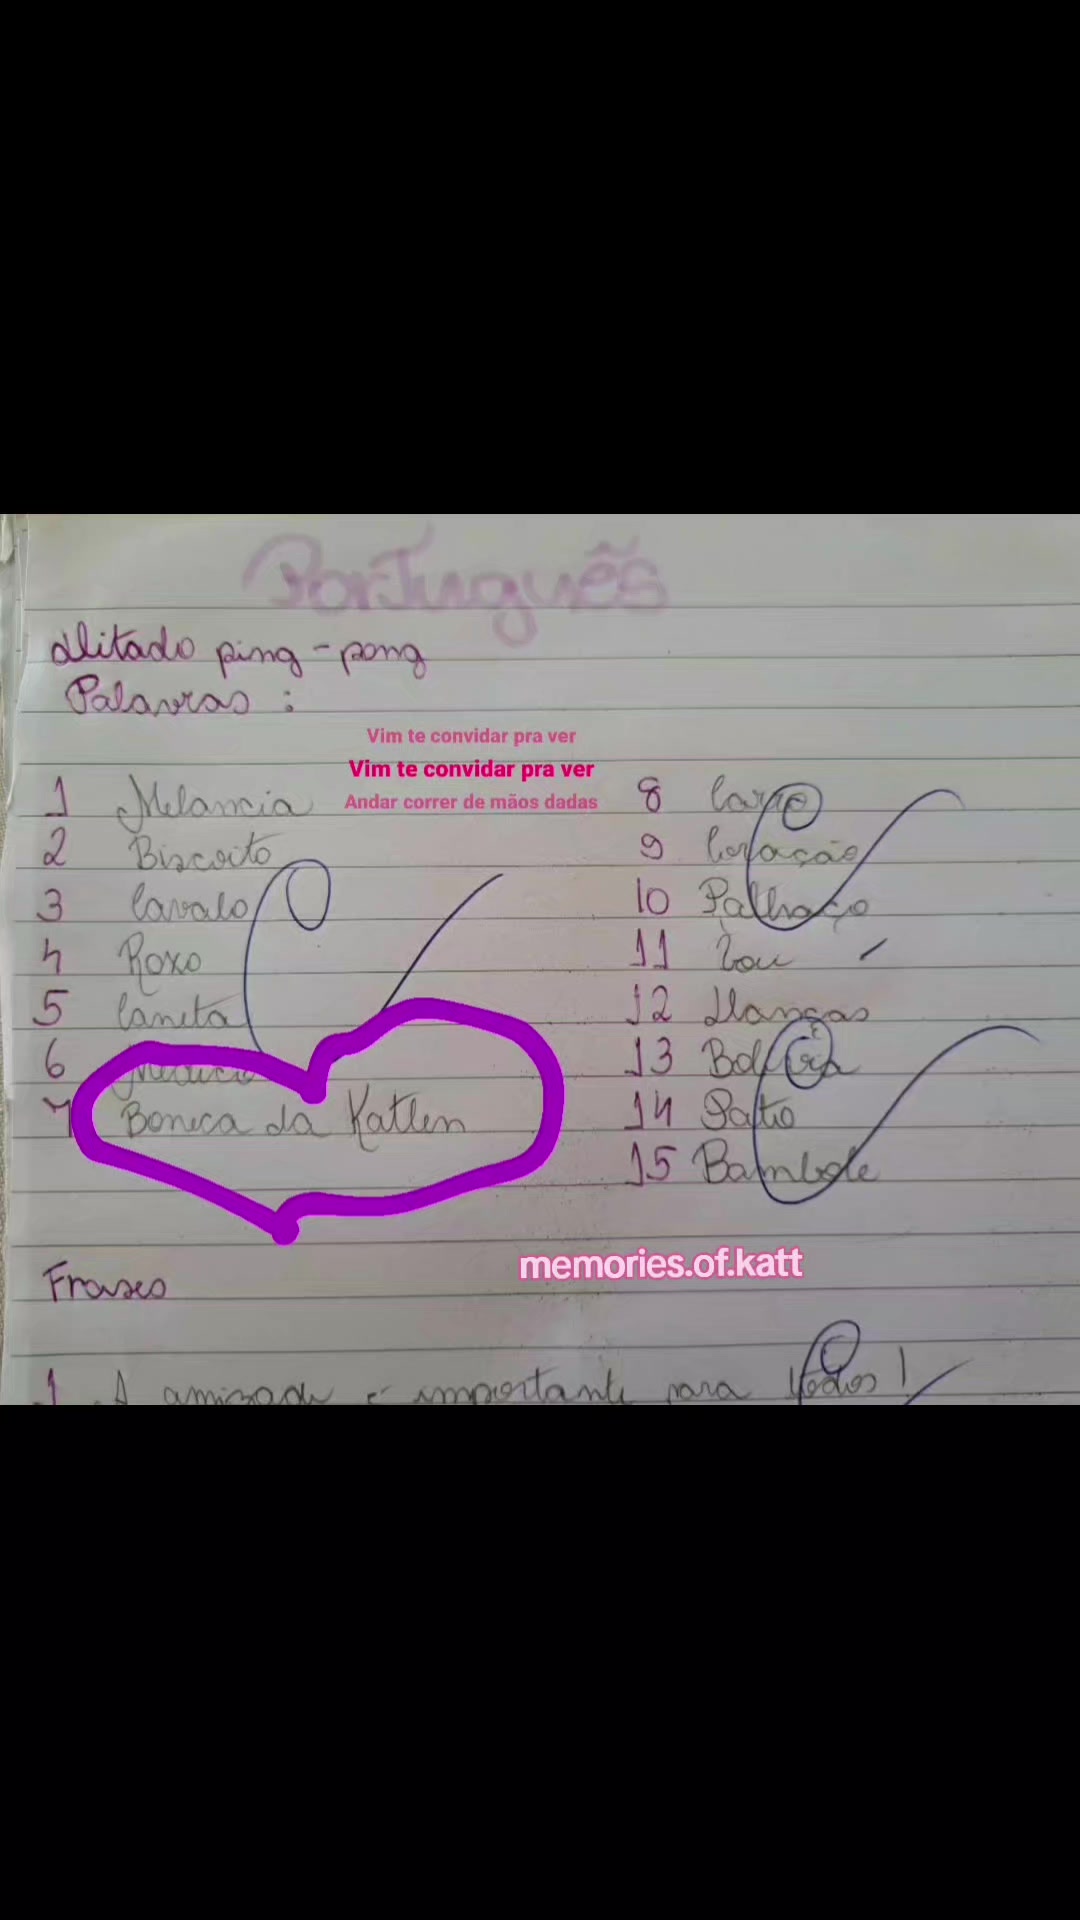 Português
Ditado ping-pong
Palavras:
Vim te convidar pra ver
Vim te convidar pra ver
Andar correr de mãos dadas
1 Melancia
2 Biscoito
3 Cavalo
4 Roxo
5 Caneta
6
7 Boneca da Katlen
8 Carro
9 Coração
10 Palhaço
11
12
13
14 Patio
15 Bambole
memories.of.katt
Frases
1 A amizade é importante para todos!